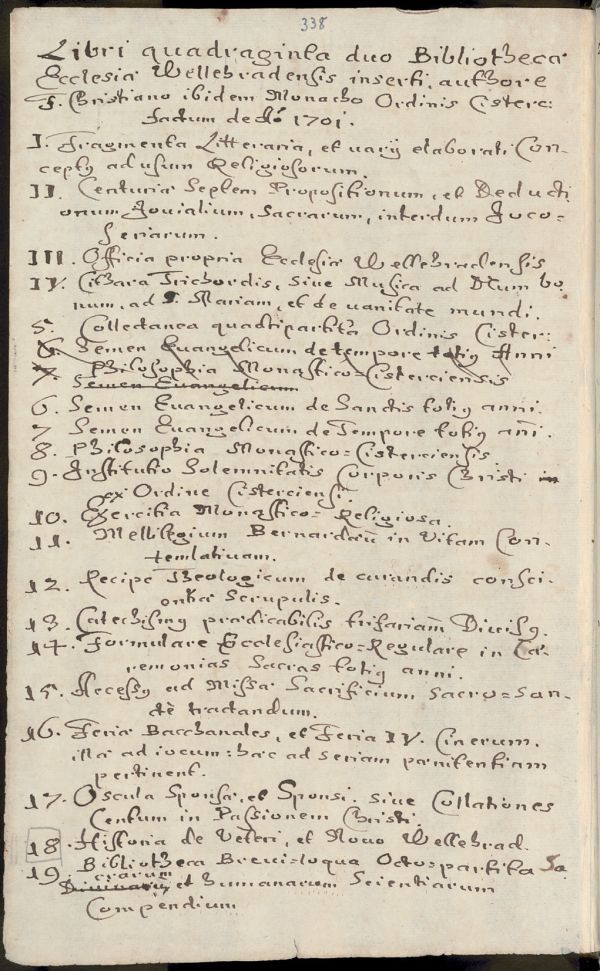 338
Libri quadraginta duo Bibliothecæ
Ecclesiæ Wellehradensis inserti, authore
F. Christiano ibidem Monacho Ordinis Cisterc:
factum 1701.
I. Fragmenta Litteraria, et varij elaborati Con-
ceptꝰ ad usum Religiosorum.
II. Centuriæ Septem Propositionum, et Deducti
onum Jovialium, Sacrarum, interdum Joco=
Seriarum.
III. Officia propria Ecclesiæ Wellehradensis
IV. Cithara Trichordis, sive Musica ad Deum bo
num, ad S. Mariam, et de vanitate mundi.
5. Collectanea quadripartita Ordinis Cister:
6. Semen Evangelicum de tempore totiꝰ Anni
7. Philosophia Monastico=Cisterciensis
Semen Evangelicum
6. Semen Evangelicum de Sanctis totiꝰ anni.
7. Semen Evangelicum de Tempore totiꝰ añi.
8. Philosophia Monastico=Cisterciensis
9. Institutio Solemnitatis Corporis Christi in
ex Ordine Cisterciensi.
10. Exercitia Monastico=Religiosa.
11. Mellilegium Bernardinũ in Vitam Con-
templativam.
12. Recipe Theologicum de curandis consci-
entiæ Scrupulis.
13. Catechismꝰ prædicabilis trifariam̃ Divisꝰ.
14. Formulare Ecclesiastico=Regulare in Cæ-
remonias Sacras totiꝰ anni.
15. Accessꝰ ad Missæ Sacrificium sacro=san-
ctè tractandum.
16. Feriæ Bacchanales, et Feria IV. Cinerum.
illa ad iocum: hæc ad seriam pænitentiam
pertinent.
17. Oscula Sponsæ, et Sponsi. sive Collationes
Centum in Passionem Christi.
18. Historia de Veteri, et Novo Wellehrad.
19. Bibliotheca Brevi=loqua Octo=partita Sa
crarum
Divinarum, et humanarum Scientiarum
Compendium